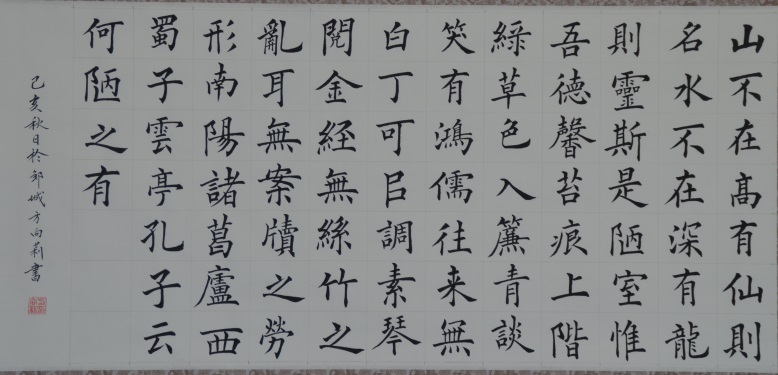 山不在髙有仙則
名水不在深有龍
則靈斯是陋室惟
吾德馨苔痕上階
綠草色入簾青談
笑有鴻儒往来無
白丁可㠯調素琴
閱金経無絲竹之
亂耳無案牘之勞
形南陽諸葛廬西
蜀子雲亭孔子云
何陋之有
己亥秋日於邹城方向莉書